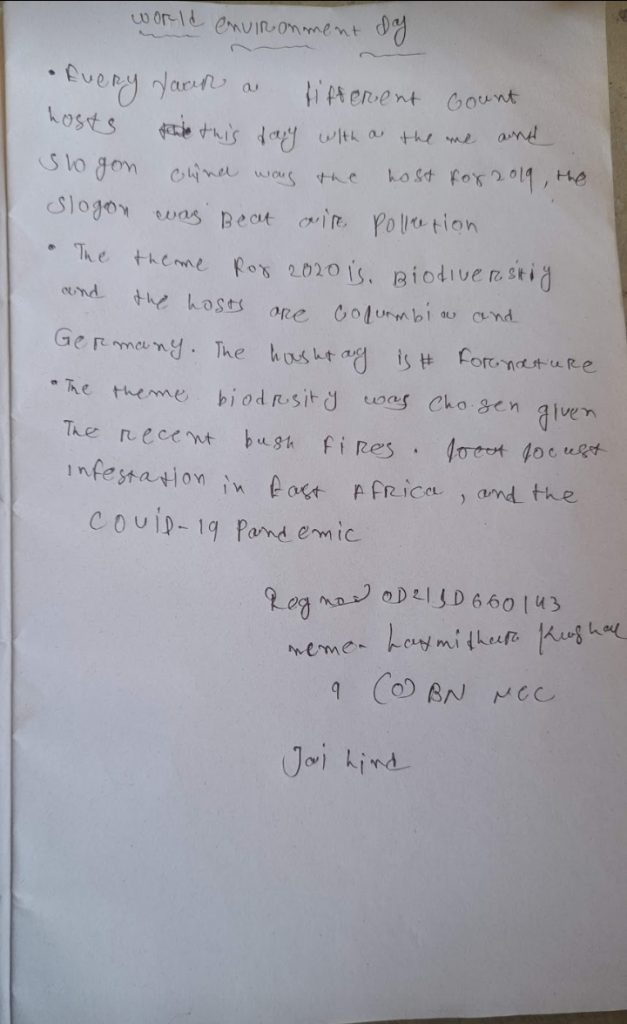 world environment Day
• Every year a different Count
hosts this day with a theme and
Slogon China was the host for 2019, the
Slogon was Beat air Pollution
• The theme for 2020 is. Biodiversitiy
and the hosts are Columbia and
Germany. The hashtag is # Fornature
• The theme biodrsity was chosen given
The recent bush fires. locust
infestation in East Africa, and the
COVID-19 Pandemic
Reg no= OD21SD660143
neme-
9 (O) BN NCC
Jai hind